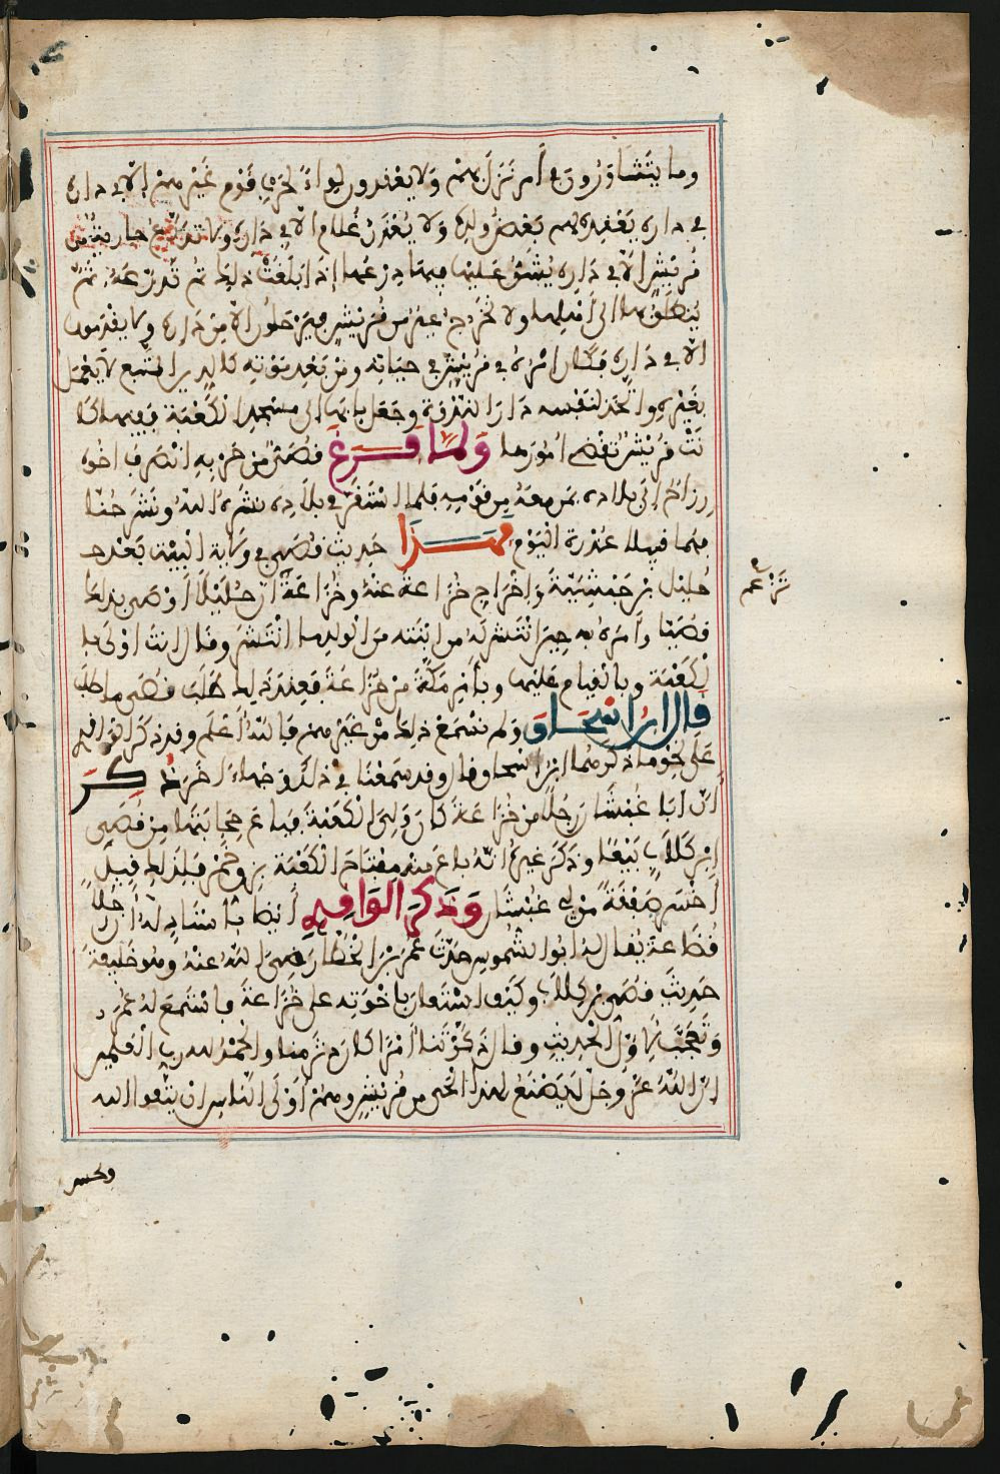 وما يتشاورون في أمر نزل بهم ولا يعقدون لواءً لحرب قوم غيرهم إلا في داره
في داره يعقده لهم بعض ولده ولا يعذر غلام إلا في داره ولا تدرع جارية من
قريش إلا في داره يشق عليها فيها درعها إذا بلغت ذلك ثم تدرعه ثم
ينطلق بها إلى أهلها ولا تخرج عير من قريش فيرحلون إلا من داره ولا يقدمون
إلا في داره فكان أمره في قريش في حياته ومن بعد موته كالدين المتبع لا يعمل
بغيره واتخذ لنفسه دار الندوة وجعل بابها إلى مسجد الكعبة ففيها كا
نت قريش تقضي أمورها ولما فرغ قصي من حربه انصرف أخوه
رزاح إلى بلاده بمن معه من قومه فلما استقر في بلاده نشره الله ونشر حنا
فهما قبيلا عذرة اليوم فهذا حديث قصي في ولاية البيت بعد
حليل بن حبشية وإخراج خزاعة عنه وخزاعة أن حليلا أوصى بذلك
تزعم
قصيا وأمره به حين انتشر له من ابنته من الولد ما انتشر وقال أنت أولى با
لكعبة وبالقيام عليها وبأمر مكة من خزاعة فعند ذلك طلب قصي ما طلب
قال ابن اسحاق ولم نسمع ذلك من غيرهم فالله أعلم وقد ذكر الواقدي
على نحو ما ذكرهما ابن اسحاق وقال وقد سمعنا في ذلك وجها آخر ذكر
أن أبا غبشان رجلا من خزاعة كان ولي الكعبة فباع حجابتها من قصي
ابن كلاب بيعا وذكر غيره أنه باع منه مفتاح الكعبة بزق خمر فلذلك قيل
أخسر صفقة من أبي غبشان وذكر الواقدي أيضا بإسناد له أن رجلا
قضاعة يقال له أبو الشموس حدث عمر بن الخطاب رضي الله عنه وهو خليفة
حديث قصي بن كلاب وكيف استعان بأخوته على خزاعة فاستمع له عمر
وتعجب لأول الحديث وقال ذكرتنا أمرا كان دثر منا والحمد لله رب العلمين
إن الله عز وجل ليصنع لهذا الحي من قريش وهم أولى الناس أن يتقوا الله